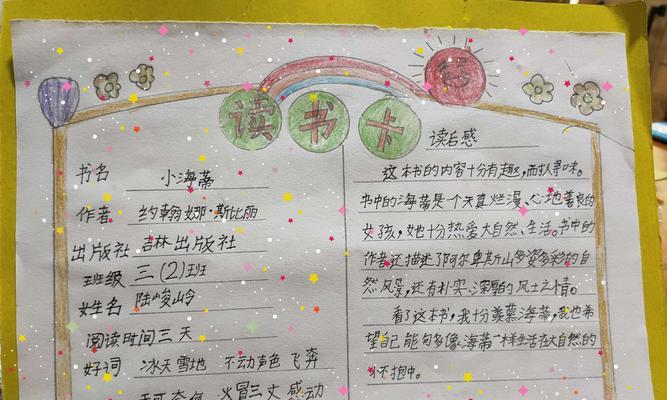 读书卡
书名 小海蒂
作者 约翰娜·斯比丽
出版社 吉林出版社
班级 三(2)班
姓名 陆峻岭
阅读时间三天
好词 冰天雪地 不动声色 飞奔
无可奈何 火冒三丈 感动
读后感
这本书的内容十分有趣,而扒寻味。
书中的海蒂是个天真烂漫、心地善良的
女孩,她十分热爱大自然、生活。书中的
作者还描述了阿尔卑斯山多姿多彩的自
然风景,还有朴实、深厚的风土之情。
看了这本书,我十份羡慕海蒂,我也希
望自己能句多像海蒂一样生活在大自然的
怀抱中。